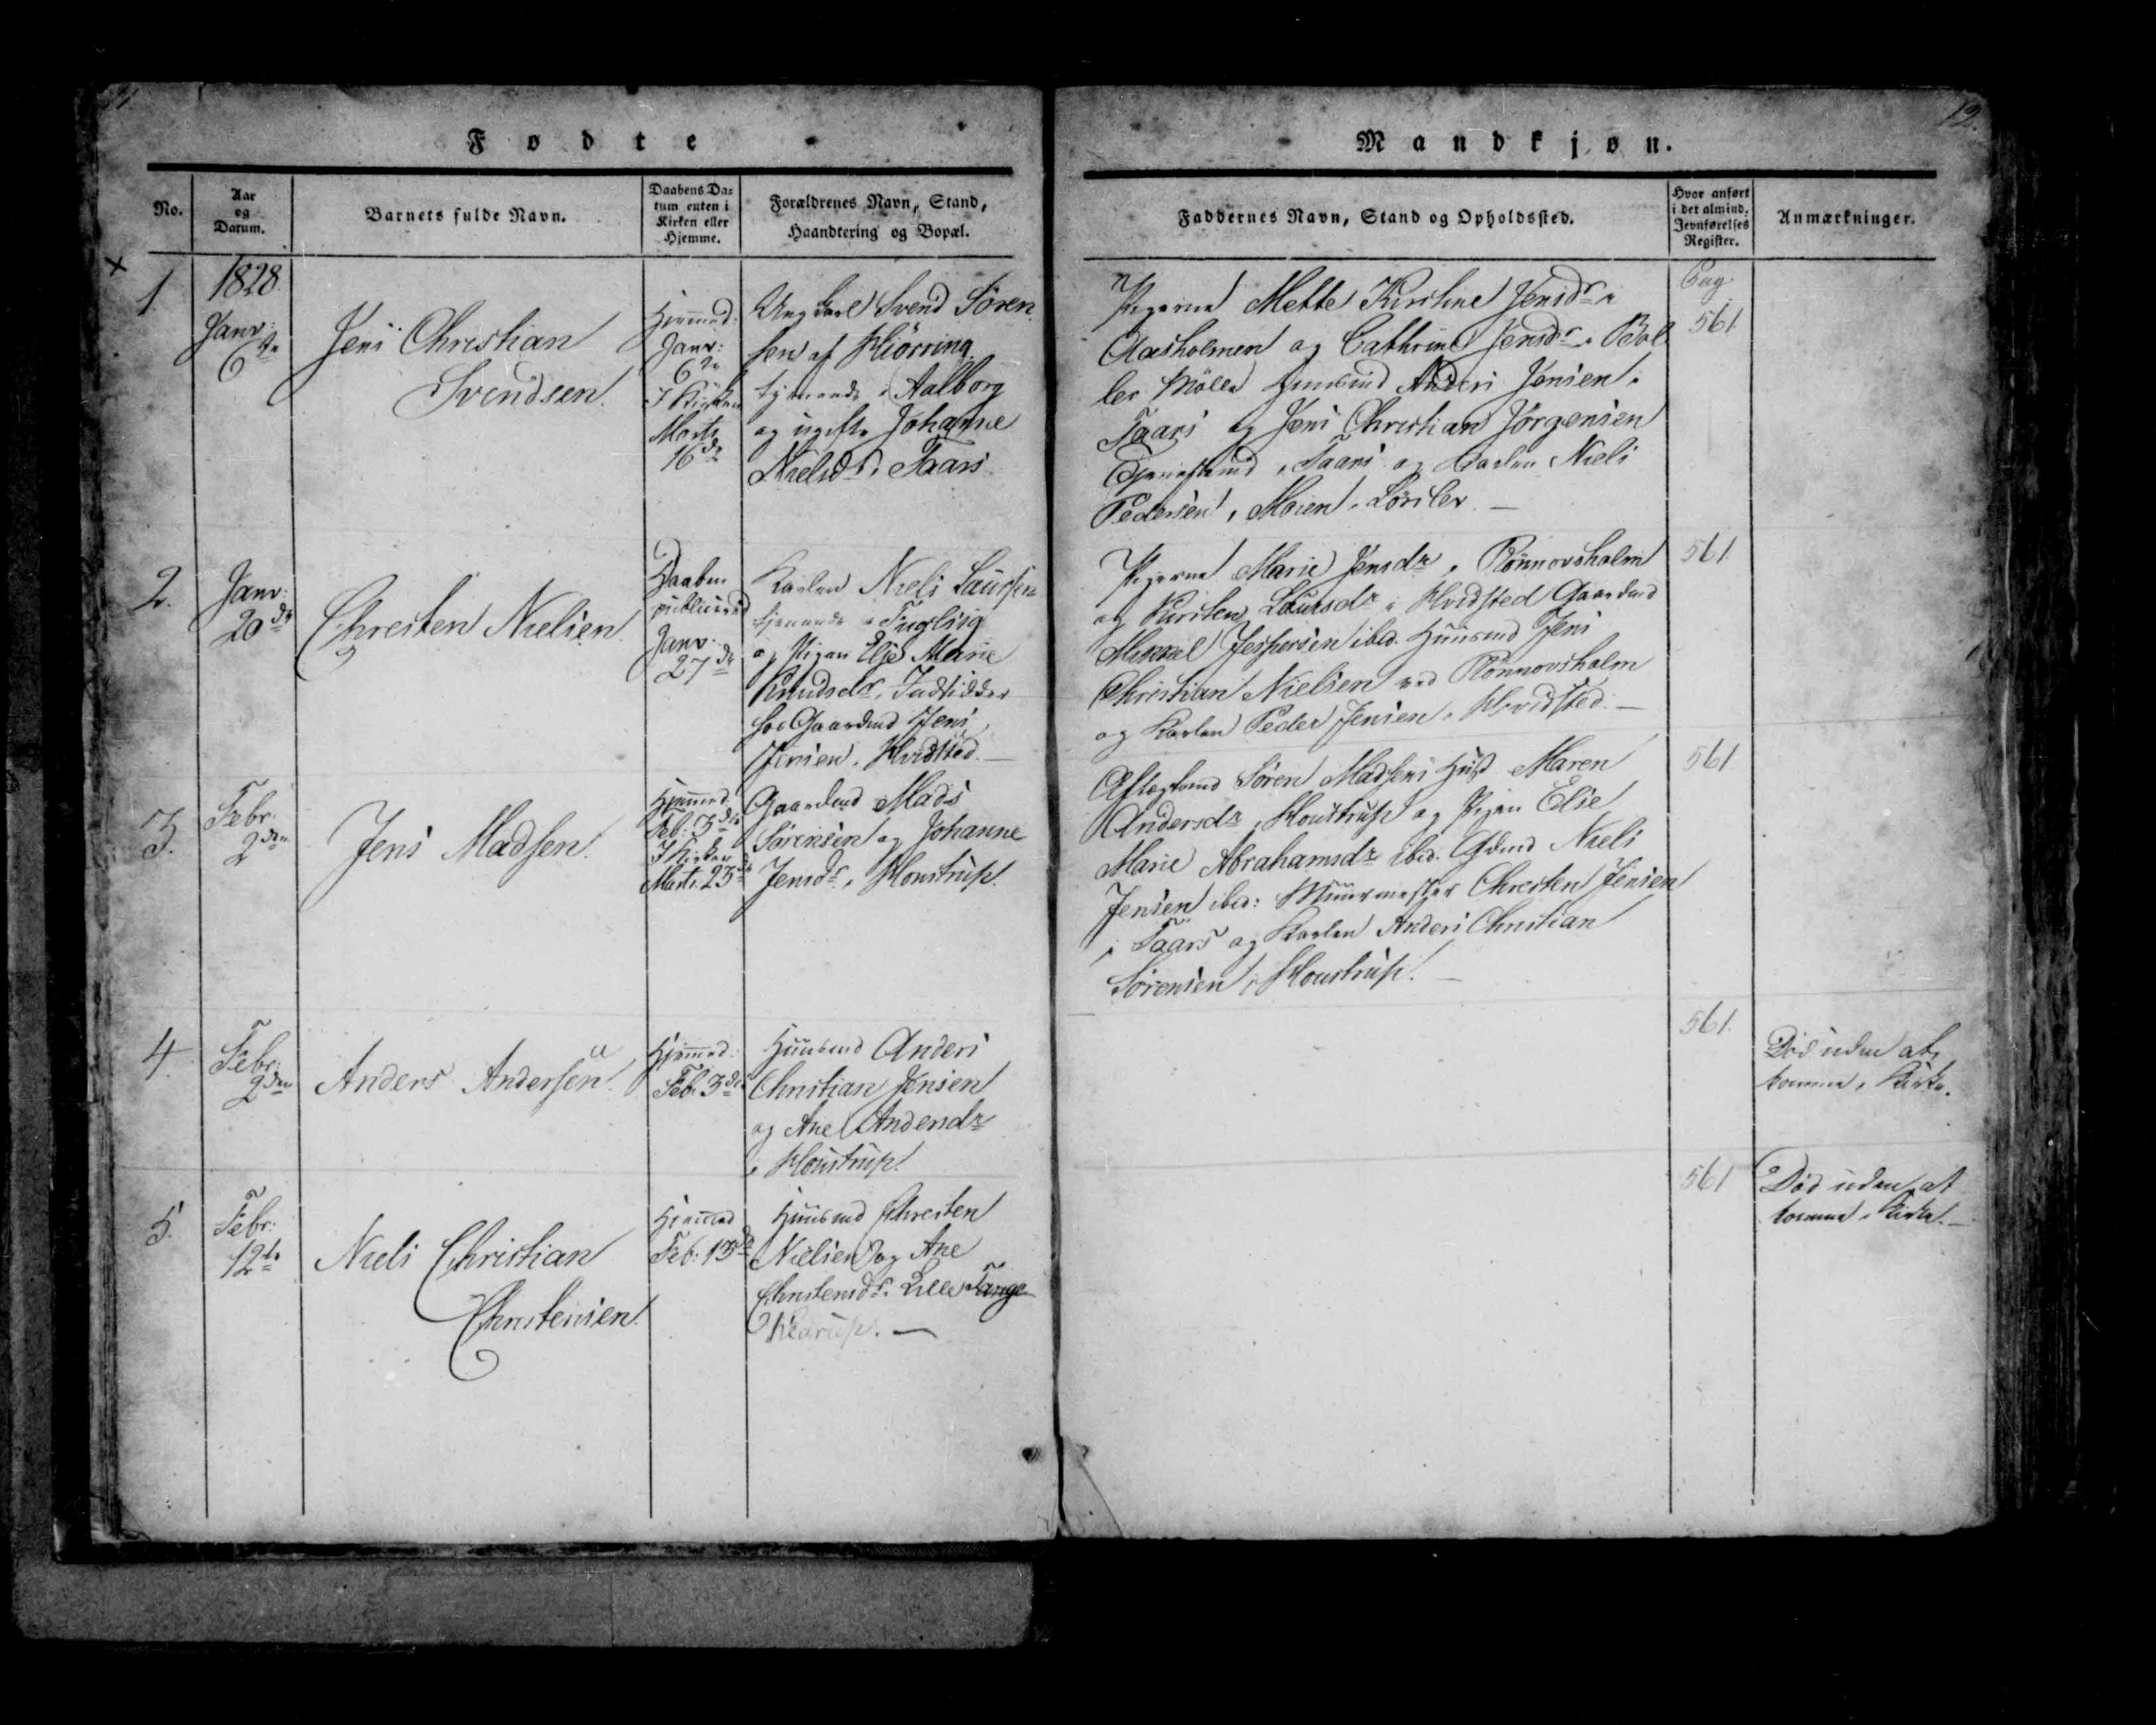 Fødte
No.
Aar
og
Datum.
Barnets fulde Navn.
Daabens Da-
tum enten i
Kirken eller
Hjemme.
Forældrenes Navn, Stand,
Haandtering og Bopæl.
1.
1828.
Janr:
6te
Jens Christian
Svendsen.
Hjemmed.
Janr:
6te
I Kirken
Marts
16de
Ung Karl Svend Søren
sen af Hiørring
tjenende i Aalborg
og ugifte Johanne
Nielsdr. i Taars.
2.
Janr:
20de
Christen Nielsen
Daaben
publiceret
Janr:
27de
Karlen Niels Laursen
tjenende i Fuglsig
og Pigen Else Marie
Knudsdr, Indsidder
hos Gaardmd Jens
Jensen i Hvidsted. —
3.
Febr:
2den
Jens Madsen.
Hjemmed.
Feb: 3die
I Kirken
Marts 23de
Gaardmd Mads
Sørensen og Johanne
Jensdr. i Houstrup.
4.
Febr:
2den
Anders Andersen.
Hjemmed:
Feb: 3die
Huusmd Anders
Christian Jensen
og Ane Andersdr
i Houstrup.
5.
Febr:
12te
Niels Christian
Christensen.
Hjemmed
Feb: 13de
Huusmd Christen
Nielsen og Ane
Christensdr. Lille Tange
Mandkjøn.
12.
Faddernes Navn, Stand og Opholdssted.
Hvor anført
i det almind.
Jevnførelses
Register.
Anmærkninger.
Pigerne Mette Kirstine Jensdr i
Aasholmen og Cathrine Jensdr i Bol
ler Mølle Huusmd Anders Jensen i
Taars og Jens Christian Jørgensen
i Taars og Karlen Niels
Pedersen, i Lørslev. —
Pag.
561.
Pigerne Marie Jensdr i Rønnovsholm
og Kirsten Laursdr i Hvidsted Gaardmd
Mikkel Jespersen ibid. Huusmd Jens
Christian Nielsen ved Rønnovsholm
og Karlen Peder Jensen i Hvidsted. —
561.
Aftægtsmd Søren Madsens Hust Maren
Andersdr i Houstrup og Pigen Else
Marie Abrahamsdr ibid. Gdmd Niels
Jensen ibid: Muurmester Christen Jensen
i Taars og Karlen Anders Christian
Sørensen i Houstrup. —
561.
561.
Død uden at
komme i Kirke.
561
Død uden at
komme i Kirke. —